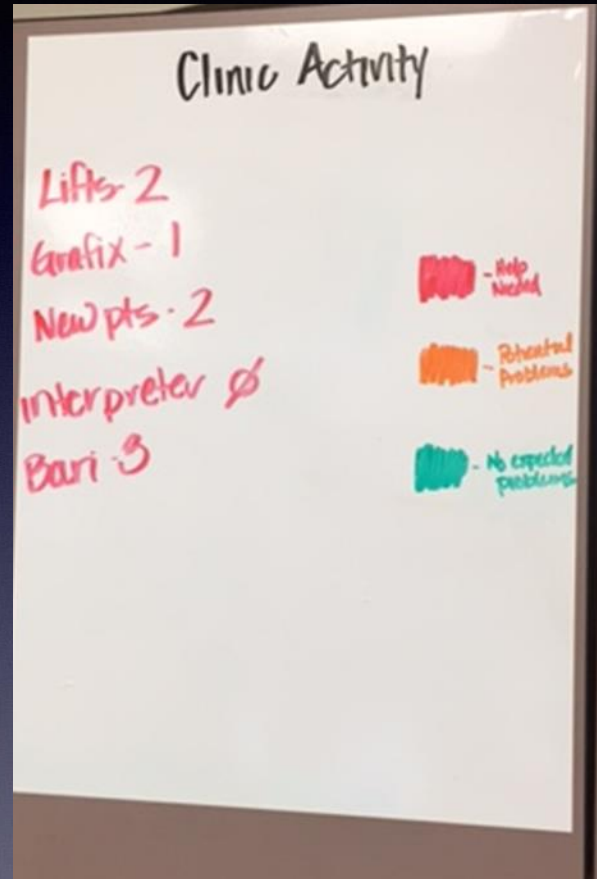 Clinic Activity
Lifts- 2
Grafix - 1
New pts - 2
interpreter ∅
Bari - 3
- Help
Needed
- Potential
Problems
- No expected
problems